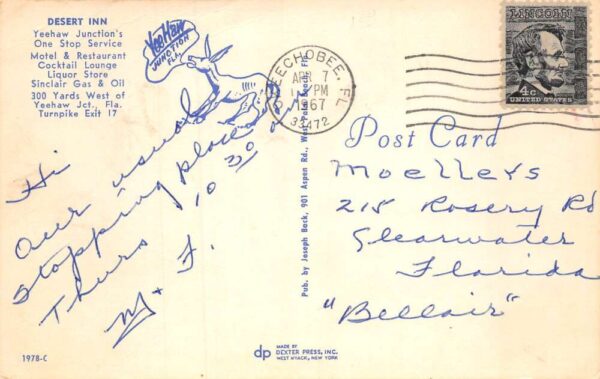 DESERT INN
Yeehaw Junction's
One Stop Service
Motel & Restaurant
Cocktail Lounge
Liquor Store
Sinclair Gas & Oil
300 Yards West of
Yeehaw Jct., Fla.
Turnpike Exit 17
YeeHaw
JUNCTION
FLA
EECHOBEE, FL
APR 7
PM
1967
33472
LINCOLN
4c UNITED STATES
Hi
Our usual
stopping place
Thurs 10 30 am
M + F.
Pub. by Joseph Back, 901 Aspen Rd., West Palm Beach, Fla.
Post Card
Moellers
215 Rosery Rd
Clearwater
Florida
"Bellair"
1978-C
dp
MADE BY
DEXTER PRESS, INC.
WEST NYACK, NEW YORK